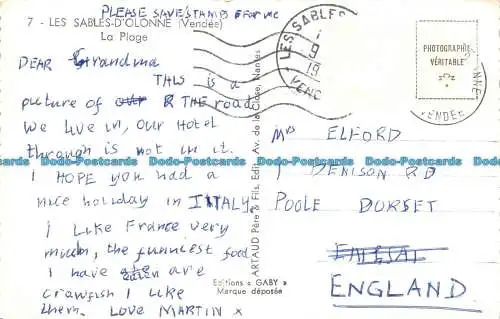 PLEASE SAVE STAMP FOR ME
7 - LES SABLES-D'OLONNE (Vendée)
La Plage
DEAR Grandma
THIS is a
picture of our R THE road
we live in, our Hotel
through is not in it.
I HOPE you had a
nice holiday in ITALY.
i Like France very
much, the funniest food
I have eaten are
crawfish I Like
them. LOVE MARTIN x
Editions « GABY »
Marque déposée
ARTAUD Père & Fils, Edit., Av. de la Close, Nantes
LES SABLES
9
VEND
PHOTOGRAPHIE
VÉRITABLE
VENDÉE
Mrs ELFORD
1 DENISON RD
POOLE DORSET
ENGLAND
Dodo-Postcards Dodo-Postcards Dodo-Postcards Dodo-Postcards Dodo-Postcards